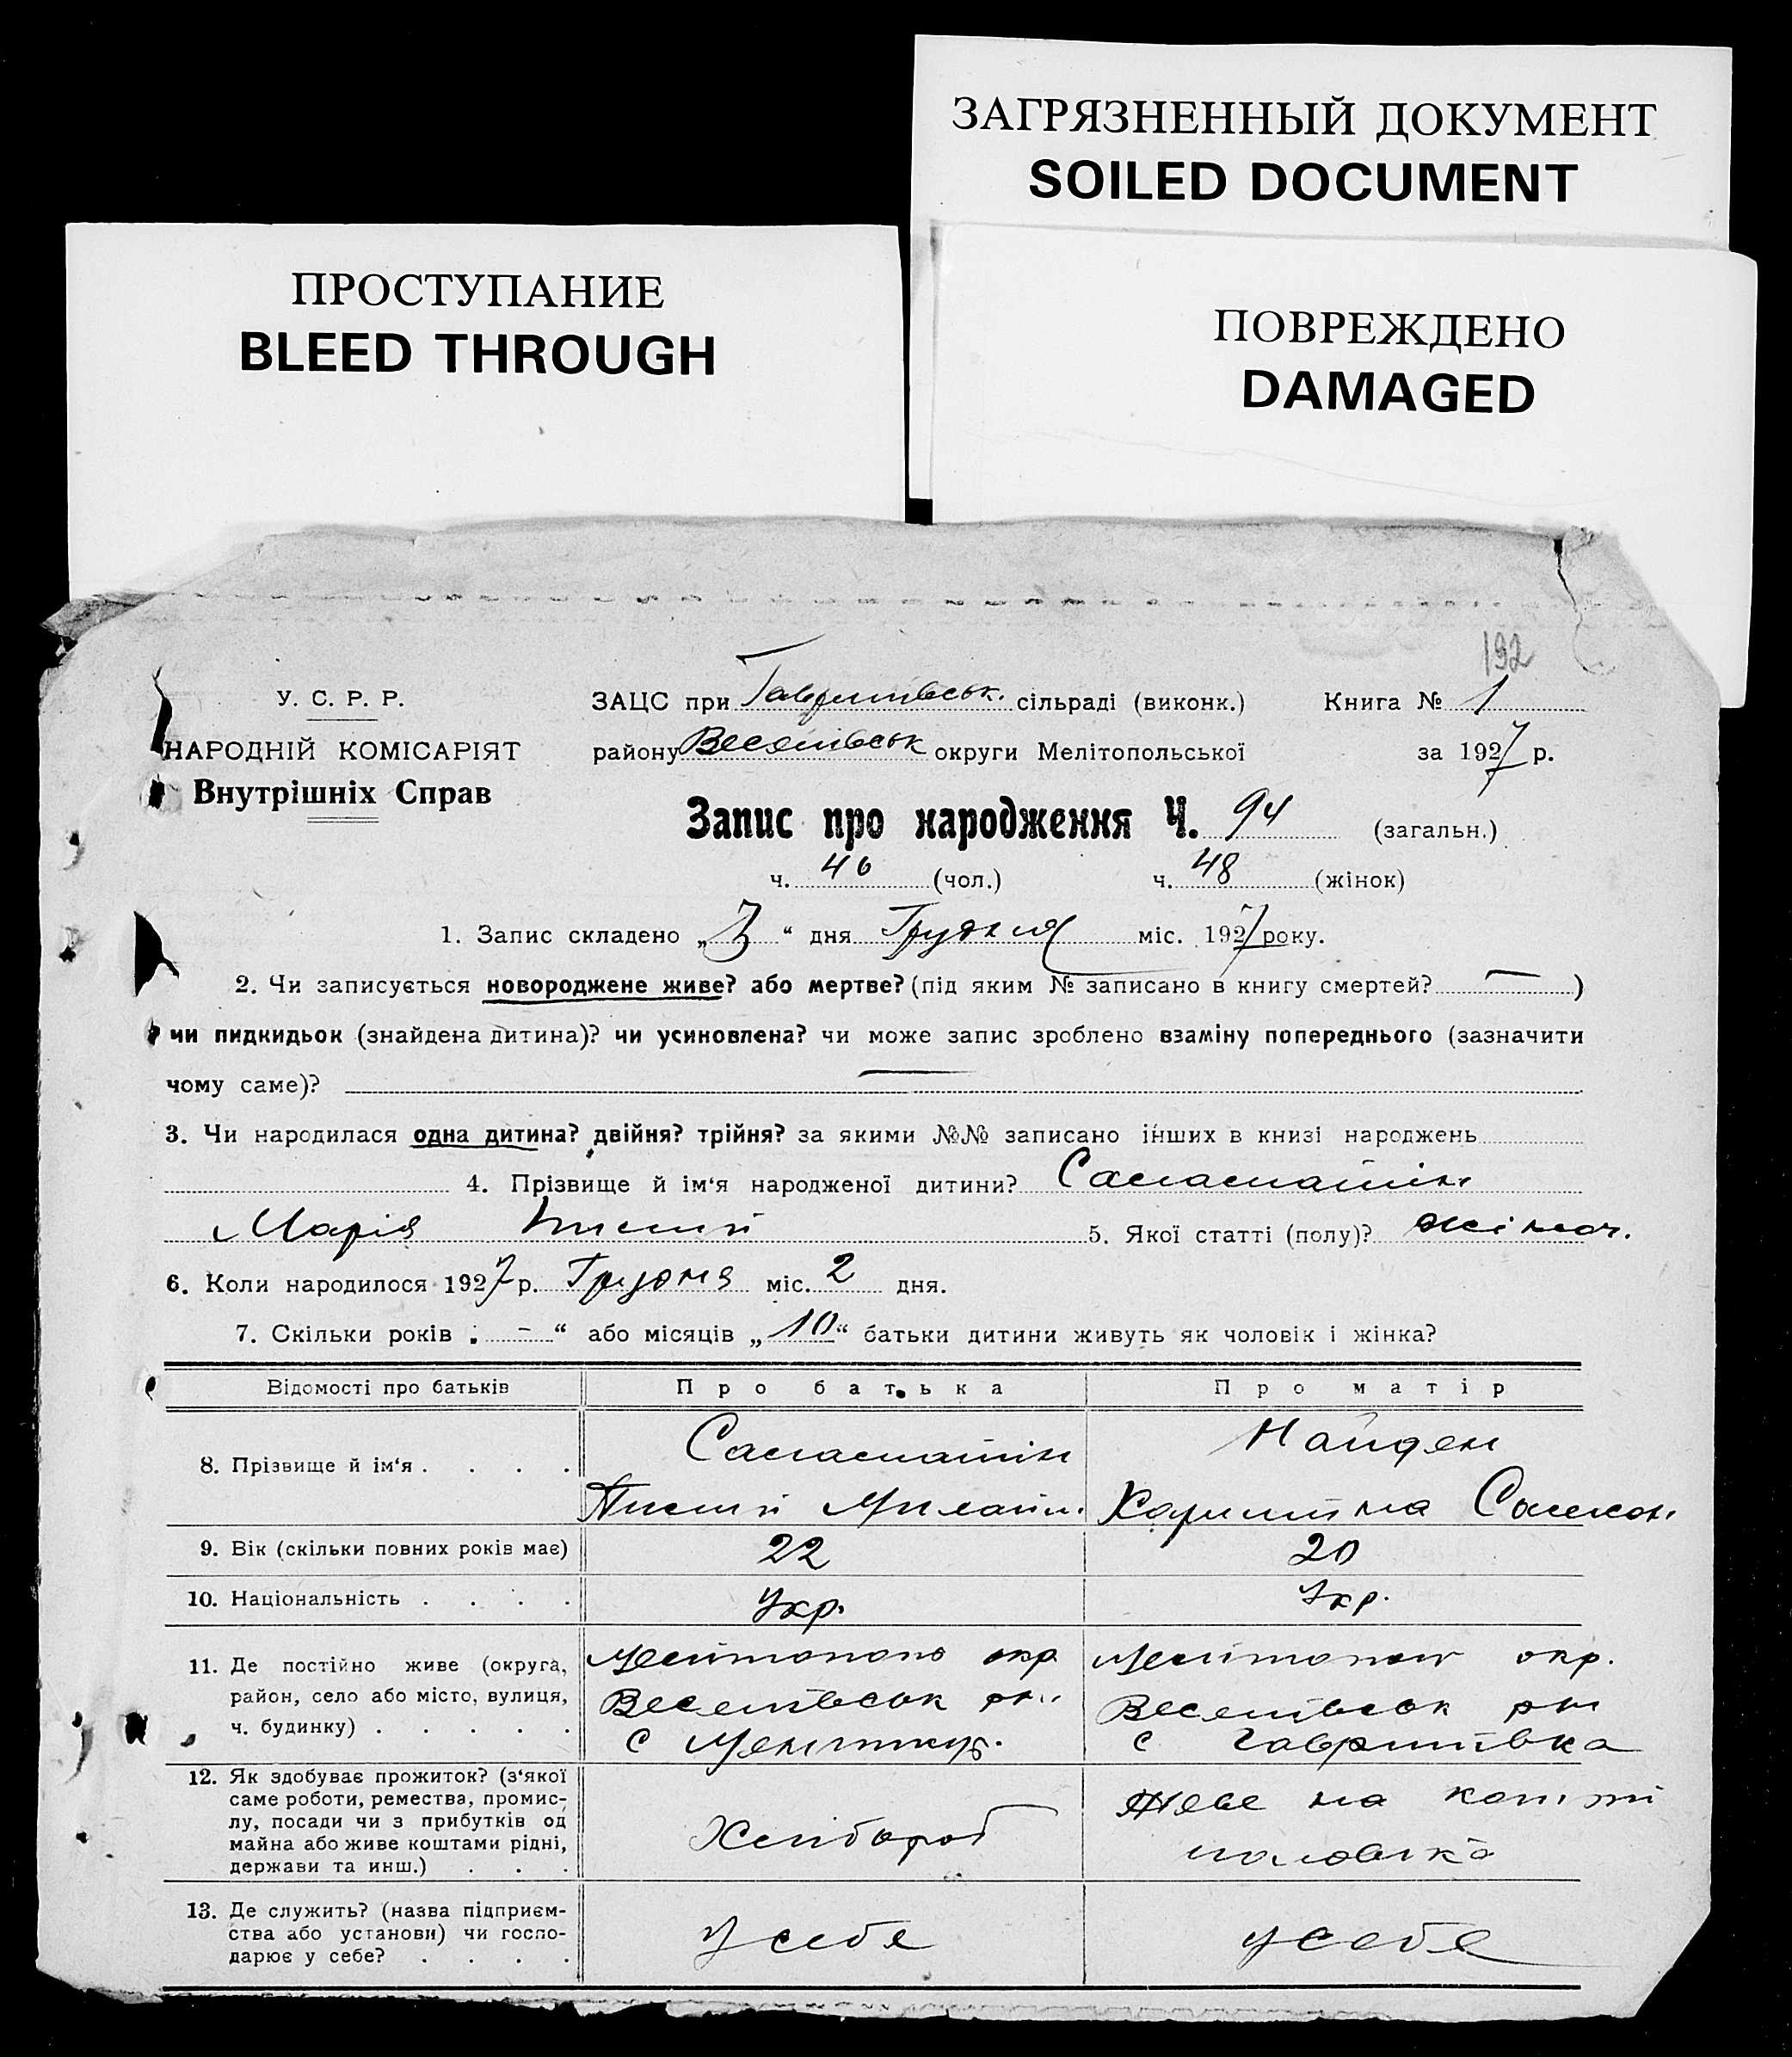 ЗАГРЯЗНЕННЫЙ ДОКУМЕНТ
SOILED DOCUMENT
ПРОСТУПАНИЕ
BLEED THROUGH
ПОВРЕЖДЕНО
DAMAGED
192
У. С. Р. Р.
НАРОДНІЙ КОМІСАРІЯТ
Внутрішніх Справ
ЗАЦС при Гаврилівськ. сільраді (виконк.) Книга № 1
району Веселівськ округи Мелітопольської за 1927 р.
Запис про народження Ч. 94 (загальн.)
ч. 46 (чол.) ч. 48 (жінок)
1. Запис складено „3“ дня Грудня міс. 1927 року.
2. Чи записується новороджене живе? або мертве? (під яким № записано в книгу смертей? —)
чи пидкидьок (знайдена дитина)? чи усиновлена? чи може запис зроблено взаміну попереднього (зазначити
чому саме)? —
3. Чи народилася одна дитина? двійня? трійня? за якими №№ записано інших в книзі народжень
4. Прізвище й ім‘я народженої дитини?
Марія 5. Якої статті (полу)? жіноч.
6. Коли народилося 1927 р. Грудня міс. 2 дня.
7. Скільки років „ - “ або місяців „10“ батьки дитини живуть як чоловік і жінка?
Відомості про батьків Про батька Про матір
8. Прізвище й ім‘я . . . . Найден
9. Вік (скільки повних років має) 22 20
10. Національність . . . . Укр. Укр.
11. Де постійно живе (округа,
район, село або місто, вулиця,
ч. будинку) . . . . .
окр. окр.
Веселівськ Веселівськ
с с Гаврилівка
12. Як здобуває прожиток? (з‘якої
саме роботи, ремества, промис-
лу, посади чи з прибутків од
майна або живе коштами рідні,
держави та инш.) . . .
Хлібороб
Живе на кошти
чоловіка
13. Де служить? (назва підприєм-
ства або установи) чи госпо-
дарює у себе? . . . .
У себе у себе